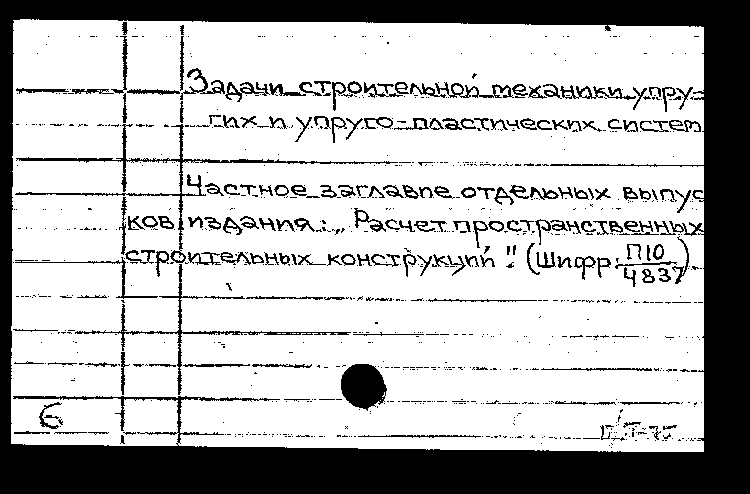 Задачи строительной механики упру-
гих и упруго-пластических систем
Частное заглавие отдельных выпус
ков издания: „Расчет пространственных
строительных конструкций". (Шифр: П10/4837)
6